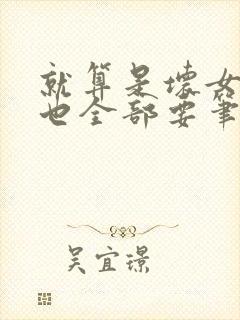 就算是壞女
也全部要筆
吴宜璟